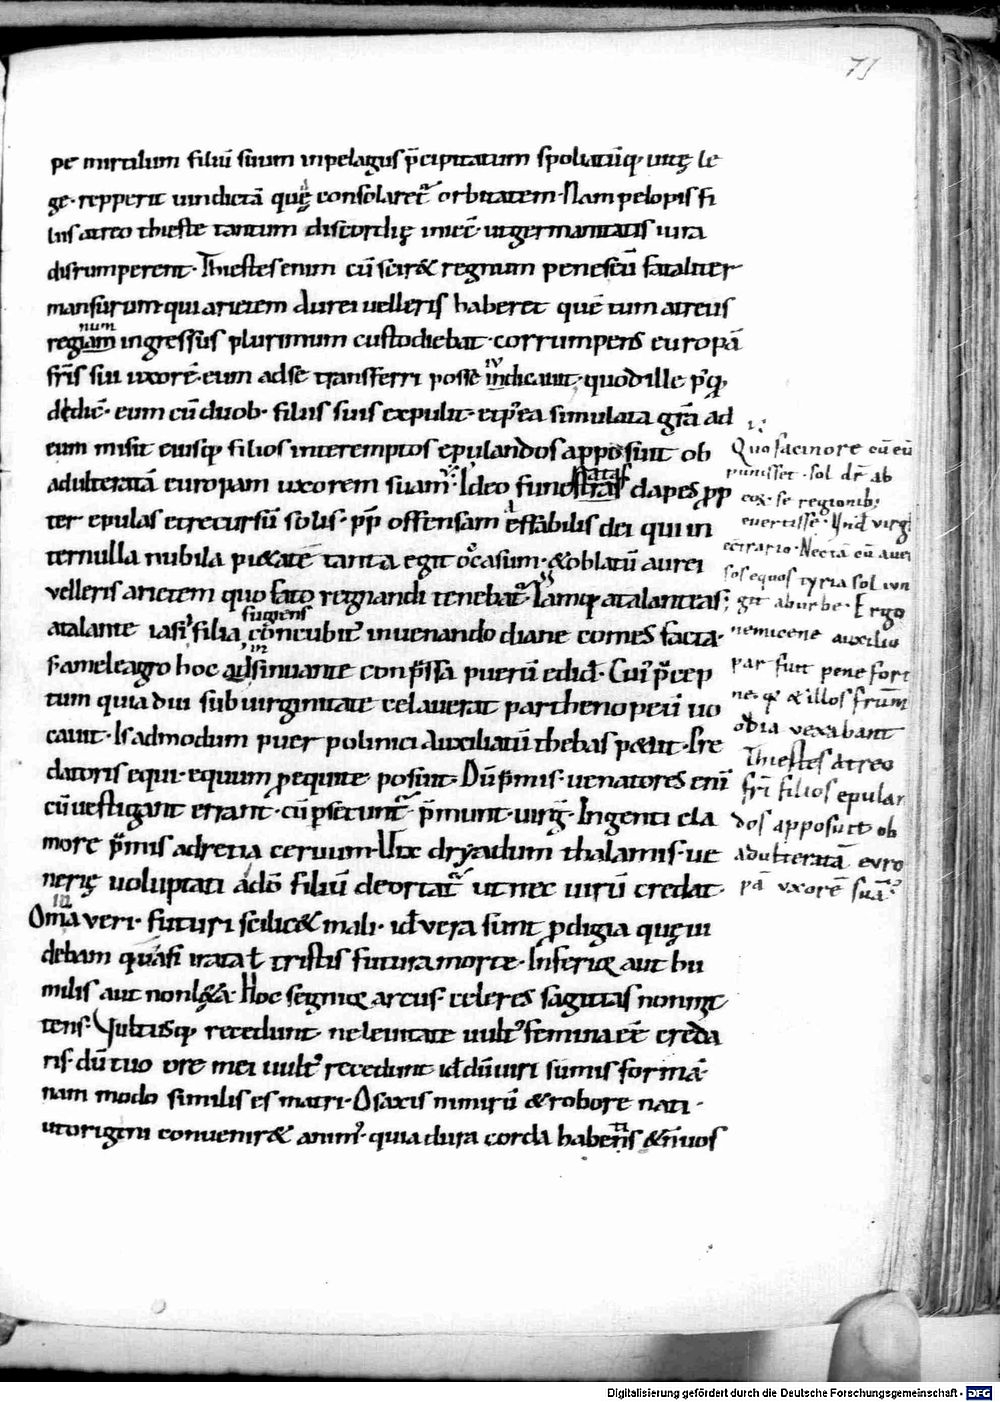 71
pe mirtilum filiū suum inpelagus p̄cipitatum spoliatūq; uitę le
ge· repperit uindictā quę consolaret᷑ orbitatem· Nam pelopis fi
lius atreo thieste tantum discordię iniec̄· ut germanitatis iura
disrumperent· Thiestes enim cū scir& regnum penes eū fataliter
mansurum· qui arietem aurei uelleris haberet quē tum atreus
num
regiam ingressus plurimum custodiebat· corrumpens europā
fr̄is sui uxorē· eum ad se transferri posse indicauit· quod ille
eum cū duob· filiis suis expulit· et p̉ea simulata gr̄a ad
eum misit eiusq; filios interemptos epulandos apposuit ob
adulteratā europam uxorem suam· Ideo dapes p̄p
ter epulas et recursū solis· p̄p offensam effabilis dei qui in
ternulla nubila tanta egit occasum· & oblatū aurei
uelleris arietem quo fato regnandi tenebat᷑· Iamq; atalanteas;
fugiens
atalante iasi᾽ filia concubit᾽ in uenando diane comes facta·
s· a meleagro hoc adsinuante con p̄ssa puerū edid· Cui᾽ p̄cep
tum quia diu sub uirginitate celauerat parthenopeū uo
cauit· Is admodum puer polinici auxiliatū thebas p&iit· Pre
datoris equi· equum p equite posuit· Dū p̄mis· uenatores enī
cū uestigant errant· cū p̄secunt᷑ p̄munt· uirḡ· Ingenti cla
more p̄mis ad retia ceruum· Vix dryadum thalamis· ue
neris uoluptati adō filiū de ortat᷑ ut nec uirū credat·
Omīa veri· futuri scilic& mali· id̄ vera sunt p̄digia quę ui
debam quasi irata t̄ tristis futura morte· Inferiq; aut hu
milis aut non Hoc segniq; arcus· celeres sagittas non mit
tens· Vultusq; recedunt· ne leuitate uult᾽ femina eē creda
ris· dū tuo ore mei uult᾽ recedunt· id̄ dū uiri sumis formā·
nam modo similis es matri· O saxis nimirū & robore nati·
ut origini conuenir& anim᾽· quia dura corda habens & n̄ uos
Quo facinore cū eū
punisset· sol dr̄ ab
eox se regionib;
euertisse· Vnd̄ virgi
ē c̄trario· Nec tā cū auer
sos equos tyria sol iun
git ab urbe· Ergo
nemicene auxilio
par fuit pene fort
ne· q; & illos fr̄um
odia vexabant
Thiestes atreo
fr̄i filios epulan
dos apposuit ob
adulteratā euro
pā vxorē suā·